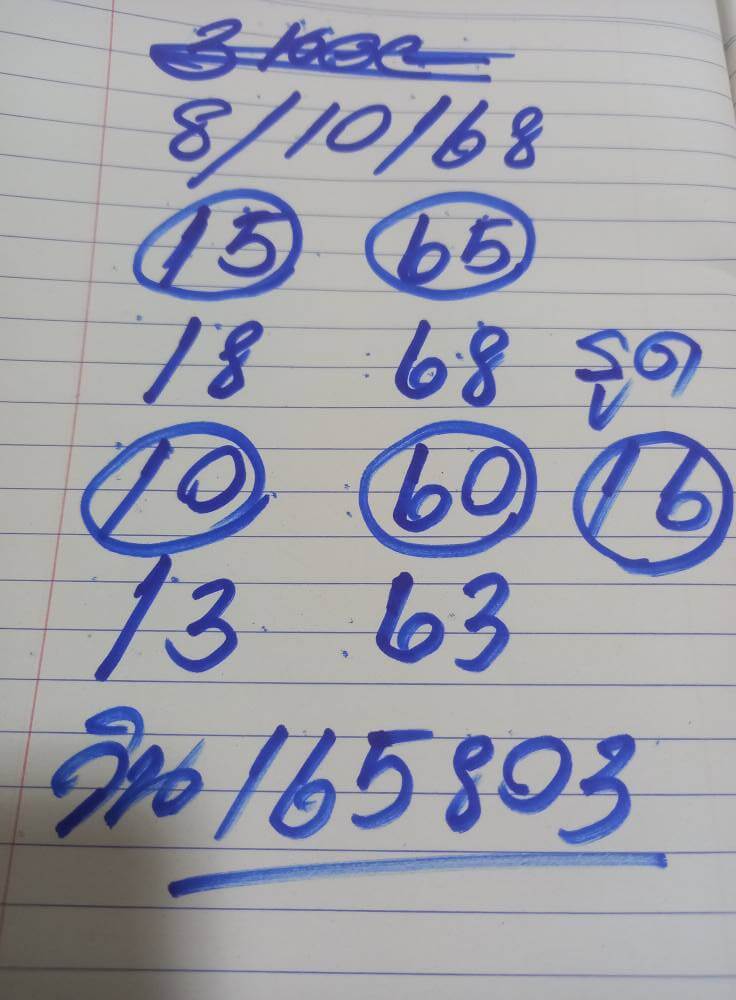 8/10/68
15 65
18 68 รูด
10 60 16
13 63
วิน 165803